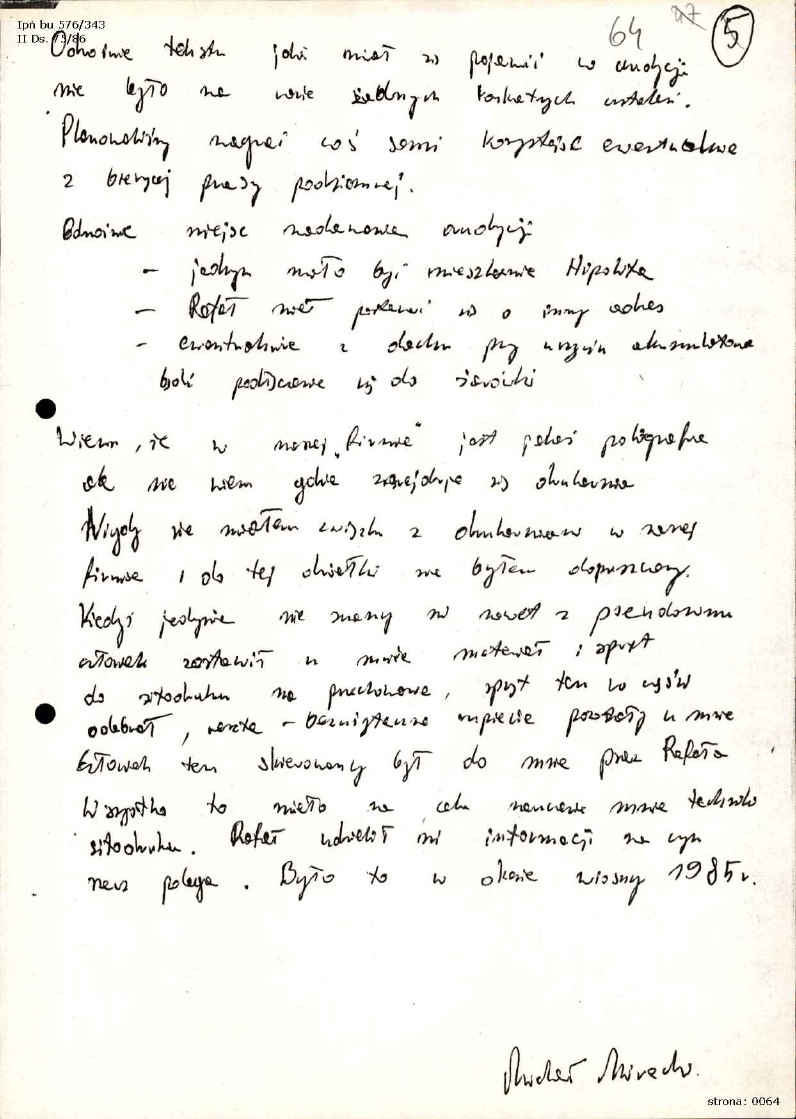 Ipn bu 576/343
II Ds. 75/86
64
47
5
Odnośnie tekstu jaki miał się pojawić w audycji
nie było na razie żadnych konkretnych ustaleń.
Planowaliśmy nagrać coś sami korzystając ewentualnie
z bieżącej prasy podziemnej.
Odnośnie miejsc nadawania audycji
– jednym miało być mieszkanie Hipolita
– Rafał miał postarać się o inny adres
– ewentualnie z dachu przy użyciu akumulatora
bądź podłączenie się do żarówki
Wiem, że w naszej „firmie" jest jakaś poligrafia
ale nie wiem gdzie znajduje się drukarnia
Nigdy nie miałem związku z drukarniami w naszej
firmie i do tej działki nie byłem dopuszczany.
Kiedyś jedynie nie znany mi nawet z pseudonimu
człowiek zostawił u mnie materiał i sprzęt
do sitodruku na przechowanie, sprzęt ten
odebrał, reszta – pozostały u mnie
Człowiek ten skierowany był do mnie przez Rafała
Wszystko to miało na celu nauczenie mnie techniki
sitodruku. Rafał udzielił mi informacji na czym
rzecz polega. Było to w okresie wiosny 1985r.
Michał
strona: 0064